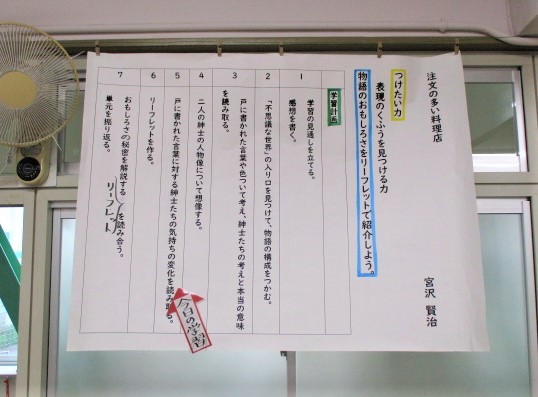 注文の多い料理店
宮沢 賢治
つけたい力
表現のくふうを見つける力
物語のおもしろさをリーフレットで紹介しよう。
学習計画
1
学習の見通しを立てる。
感想を書く。
2
「不思議な世界」の入り口を見つけて、物語の構成をつかむ。
3
戸に書かれた言葉や色ついて考え、紳士たちの考えと本当の意味
を読み取る。
4
二人の紳士の人物像について想像する。
5
戸に書かれた言葉に対する紳士たちの気持ちの変化を読み取る。
今日の学習
6
リーフレットを作る。
7
おもしろさの秘密を解説する
リーフレット
を読み合う。
単元を振り返る。